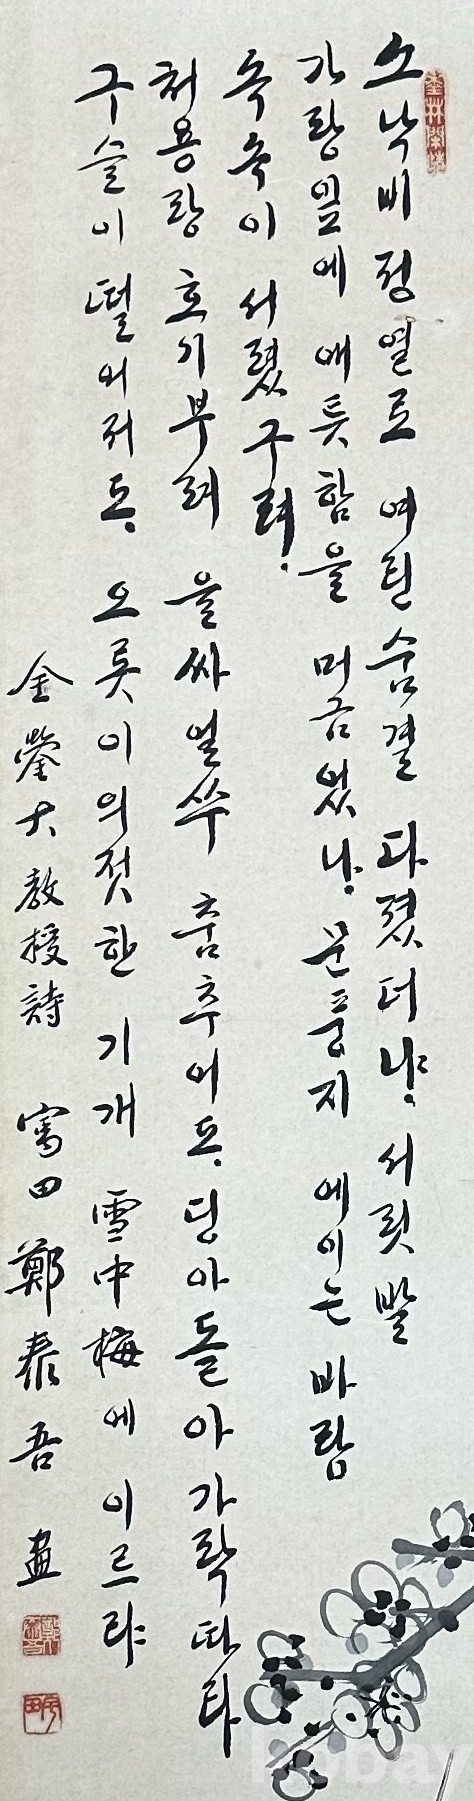 소낙비 정열로 여린 숨결 다졌더냐. 서릿발
가랑잎에 애틋함을 머금었나. 문풍지 에이는 바람
속속이 서렸구려.
처용랑 호기부려 을싸얼쑤 춤추어도. 딩아돌아 가락따라
구슬이 떨어져도. 오롯이 의젓한 기개 雪中梅에 이르랴
金鎣大敎授詩 寫田 鄭泰吾 畫
kobay